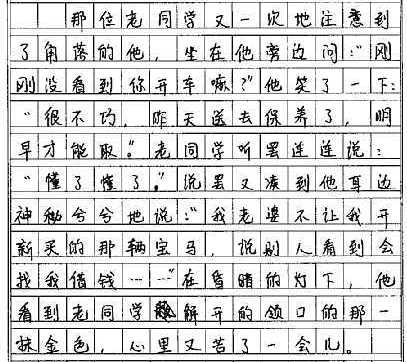 那位老同学又一次地注意到
了角落的他，坐在他旁边问：“刚
刚没看到你开车嘛？”他笑了一下：
“很不巧，昨天送去保养了，明
早才能取。”老同学听罢连连说：
“懂了懂了。”说罢又凑到他耳边
神秘兮兮地说：“我老婆不让我开
新买的那辆宝马，说别人看到会
找我借钱……”在昏暗的灯下，他
看到老同学解开的领口的那一
抹金色，心里又苦了一会儿。